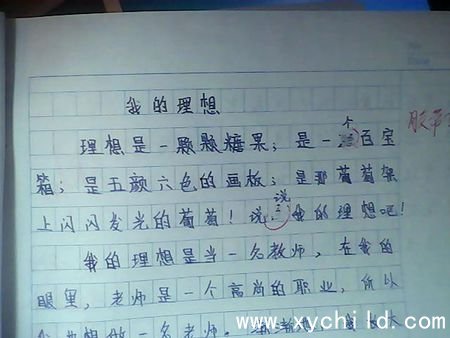 我的理想
理想是一颗颗糖果；是一个百宝
箱；是五颜六色的画板；是那葡萄架
上闪闪发光的葡萄！说说我的理想吧！
我的理想是当一名教师，在我的
眼里，老师是一个高尚的职业，所以
想做一名老师。
www.xychild.com